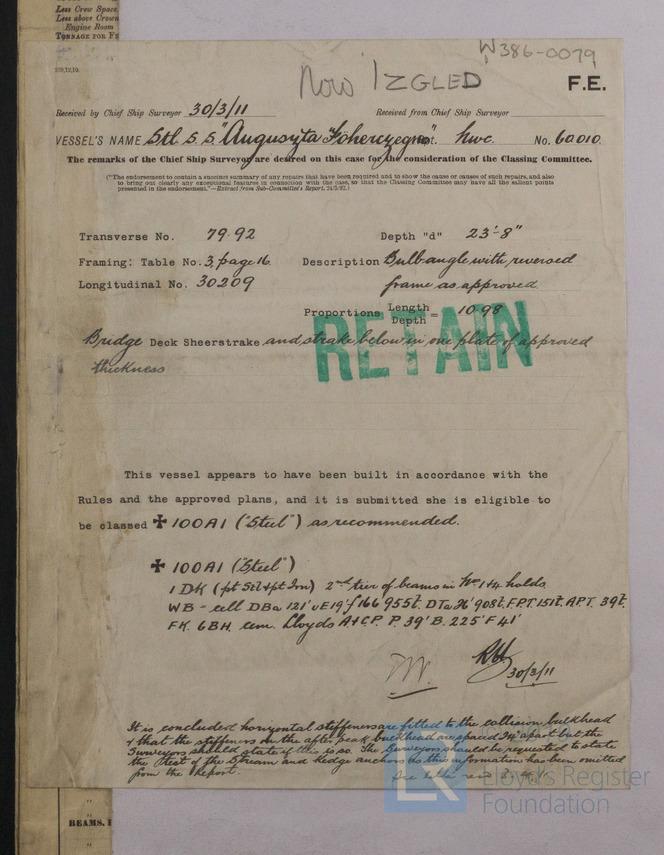 Less Crew Space
Less above Crown
Engine Room
TONNAGE FOR FE
W386-0079
Now IZGLED
F.E.
Received by Chief Ship Surveyor 30/3/11 Received from Chief Ship Surveyor
VESSEL'S NAME Stl S.S. "Auguszta Foherczegno" Rpt. Nwc. No. 60010.
The remarks of the Chief Ship Surveyor are desired on this case for the consideration of the Classing Committee.
("The endorsement to contain a succinct summary of any repairs that have been required and to show the cause or causes of such repairs, and also
to bring out clearly any exceptional features in connection with the case, so that the Classing Committee may have all the salient points
presented in the endorsement."—Extract from Sub-Committee's Report, 24/5/92.)
Transverse No. 79.92 Depth "d" 23'-8"
Framing: Table No. 3, page 16. Description Bulb angle with reversed
Longitudinal No. 30209 frame as approved
Proportions Length
Depth = 10.98
RETAIN
Bridge Deck Sheerstrake and strake below in one plate of approved
thickness
This vessel appears to have been built in accordance with the
Rules and the approved plans, and it is submitted she is eligible to
be classed ✠ 100A1 ("Steel") as recommended.
✠ 100A1 ("Steel")
1 DK (pt Stl & pt Irn) 2nd tier of beams in Nos 1 & 4 holds
WB - cell DBa 121' uE19' f 166' 955t. DTa 26' 908t. F.P.T. 151t. A.P.T. 39t.
FK. 6BH. cem. Lloyds A&CP. P 39' B. 225' F 41'
30/3/11
It is concluded horizontal stiffeners are fitted to the collision bulkhead
& that the stiffeners on the after peak bulkhead are spaced 24" apart but the
Surveyors should state if this is so. The Surveyors should be requested to state
the Test of the Stream and Kedge anchors as this information has been omitted
from the Report.
Lloyd's Register
Foundation
"
BEAMS, I
"